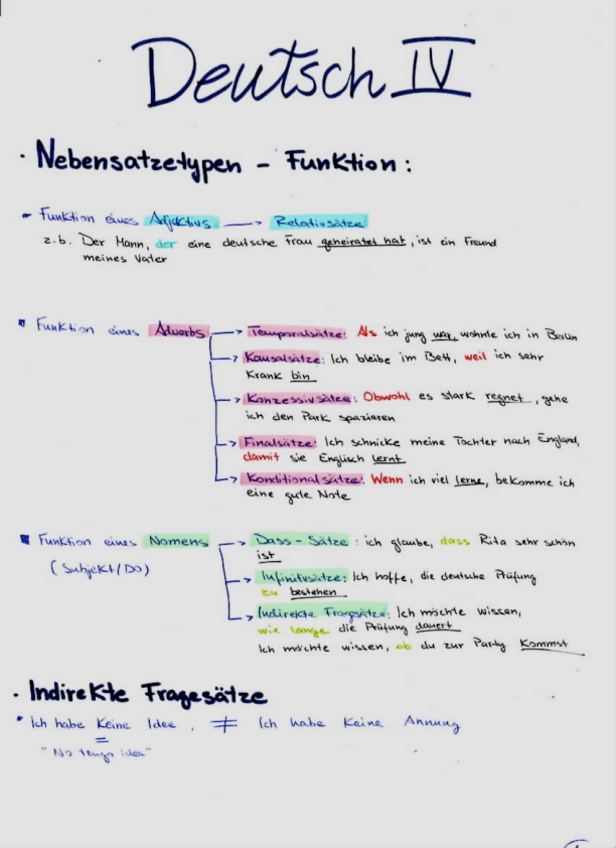 Deutsch IV
· Nebensatzetypen - Funktion:
- Funktion eines Adjektivs → Relativsätze
z.b. Der Mann, der eine deutsche Frau geheiratet hat, ist ein Freund
meines Vater
▪ Funktion eines Adverbs → Temporalsätze: Als ich jung war, wohnte ich in Berlin
→ Kausalsätze: Ich bleibe im Bett, weil ich sehr
Krank bin
→ Konzessivsätze: Obwohl es stark regnet, gehe
ich den Park spazieren
→ Finalsätze: Ich schnicke meine Tochter nach England,
damit sie Englisch lernt
→ Konditionalsätze: Wenn ich viel lerne, bekomme ich
eine gute Note
▪ Funktion eines Nomens → Dass-Sätze: ich glaube, dass Rita sehr schön
ist
(Subjekt/DO)
→ Infinitvsätze: Ich hoffe, die deutsche Prüfung
zu bestehen
→ Indirekte Fragesätze: Ich möchte wissen,
wie lange die Prüfung dauert
Ich möchte wissen, ob du zur Party Kommst
· Indirekte Fragesätze
• Ich habe Keine Idee. ≠ Ich habe Keine Annung
=
"No tengo idea"